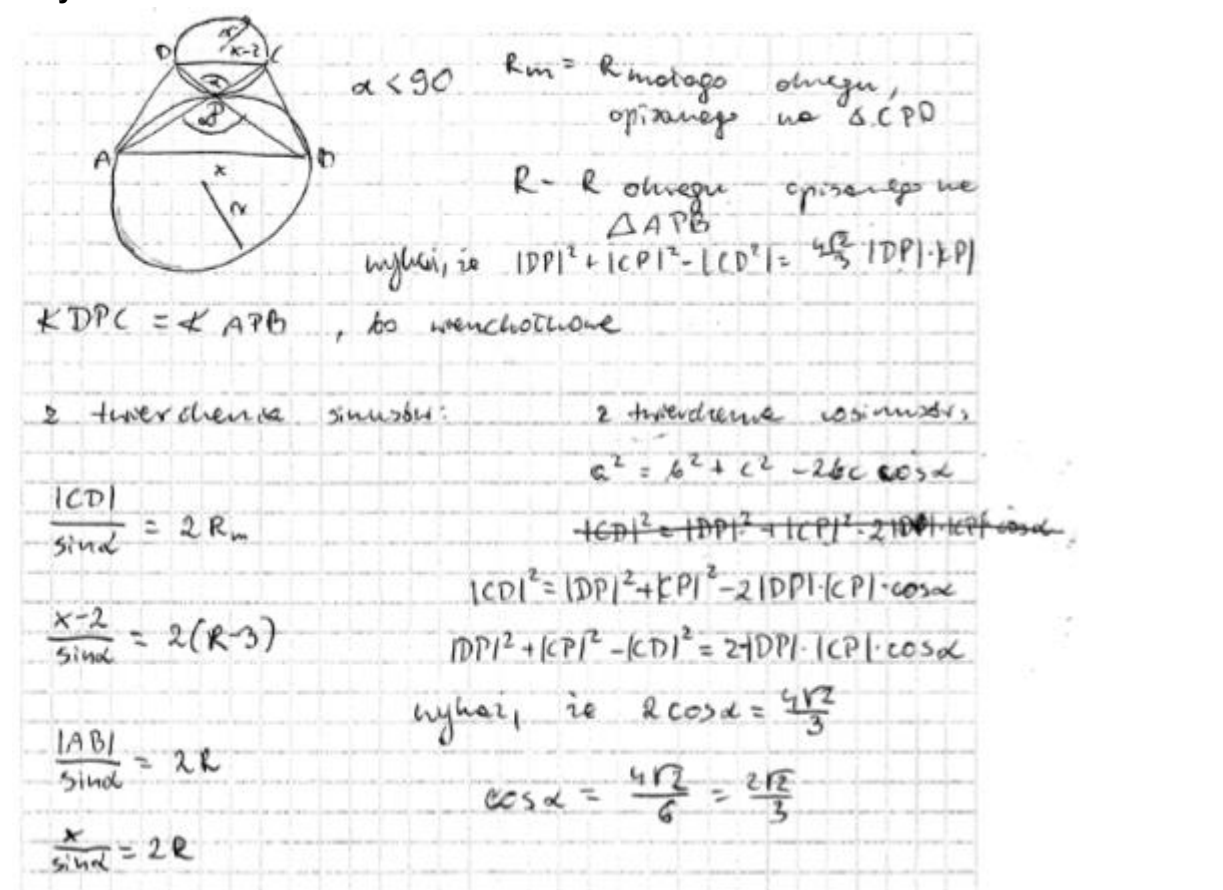 D C
r
x-2
α
P
α
A B
x
r
α < 90
Rm = R małego okręgu,
opisanego na ΔCPD
R - R okręgu opisanego na
ΔAPB
wykaż, że |DP|² + |CP|² - |CD²| = 4√2/3 |DP|·|CP|
∢DPC = ∢APB, bo wierzchołkowe
z twierdzenia sinusów:
|CD|/sinα = 2Rm
x-2/sinα = 2(R-3)
|AB|/sinα = 2R
x/sinα = 2R
z twierdzenia cosinusów:
a² = b² + c² - 2bc cosα
|CD|² = |DP|² + |CP|² - 2|DP|·|CP| cosα
|CD|² = |DP|² + |CP|² - 2|DP|·|CP|·cosα
|DP|² + |CP|² - |CD|² = 2|DP|·|CP|·cosα
wykaż, że 2cosα = 4√2/3
cosα = 4√2/6 = 2√2/3